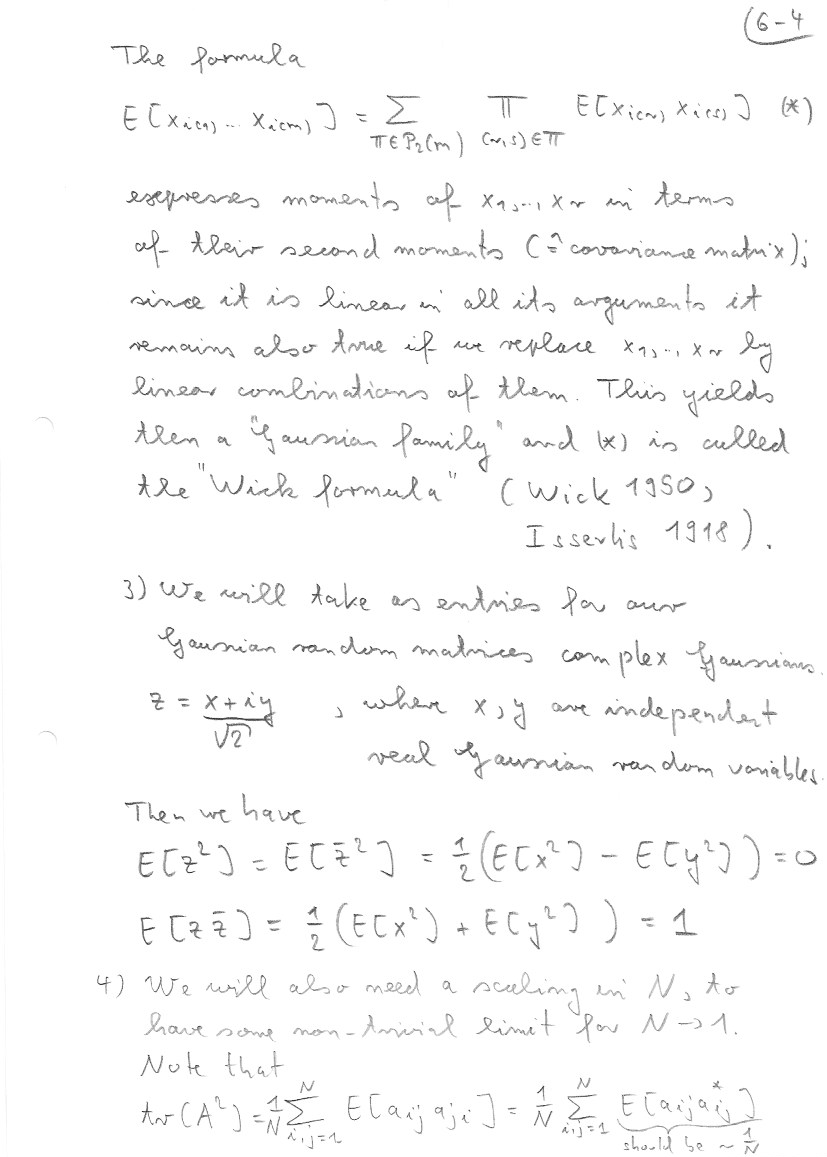 6-4
The formula
E[x_{i(1)} ... x_{i(m)}] = ∑_{π∈P_2(m)} ∏_{(r,s)∈π} E[x_{i(r)} x_{i(s)}] (*)
expresses moments of x_1,..,x_r in terms
of their second moments (≙ covariance matrix);
since it is linear in all its arguments it
remains also true if we replace x_1,..,x_r by
linear combinations of them. This yields
then a "Gaussian family" and (*) is called
the "Wick formula" (Wick 1950,
Isserlis 1918).
3) We will take as entries for our
Gaussian random matrices complex Gaussians.
z = \frac{x+iy}{√2}, where x, y are independent
real Gaussian random variables.
Then we have
E[z²] = E[z̄²] = ½(E[x²] - E[y²]) = 0
E[z z̄] = ½(E[x²] + E[y²]) = 1
4) We will also need a scaling in N, to
have some non-trivial limit for N → 1.
Note that
tr(A²) = \frac{1}{N} ∑_{i,j=1}^{N} E[a_{ij} a_{ji}] = \frac{1}{N} ∑_{i,j=1}^{N} E[a_{ij} a_{ij}^*]
should be ~ \frac{1}{N}